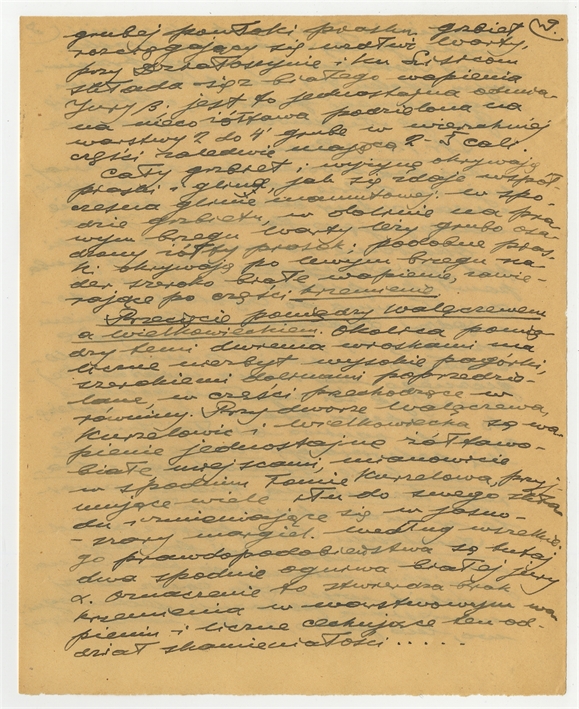 9.
grubej powłoki piasku, grzbiet
rozciągający się wzdłuż Warty,
przy Działoszynie i ku Lisicom
składa się z białego wapienia
Jury β. jest to jednostajna odmia-
na nieco żółtawa podzielona na
warstwy 2 do 4' grube w wierzchniej
części, zaledwie mające 2-5 cali.
Cały grzbiet i wyżynę okrywają
piaski i glina, jak się zdaje współ-
czesna glinie mamutowej. W spo-
dzie grzbietu, w dolinie na pra-
wym brzegu Warty leży grubo osa-
dzony żółty piasek; podobne pias-
ki okrywają po lewym brzegu na-
der szeroko białe wapienie, zawie-
rające po części krzemienie.
Przecięcie pomiędzy Walęczewem
a Wielkowieckiem. Okolica pomię-
dzy temi dwiema wioskami ma
liczne niezbyt wysokie pagórki,
szerokiemi dolinami poprzedzie-
lane, w części przechodzące w
równiny. Przy dworze Walęczewa,
Kurzelowic i Wielkowiecka są wa-
pienie jednostajne żółtawo-
białe miejscami, mianowicie
w spodzim łomie Kurzelowa, przyj-
mujące wiele iłu do swego skła-
du i zmieniające się w jasno-
-szary margiel. Według wszelkie-
go prawdopodobieństwa są tutaj
dwa spodnie ogniwa białej Jury
α. Oznaczenie to stwierdza brak
krzemienia w warstwowym wa-
pieniu i liczne cechujące ten od-
dział skamieniałości.....